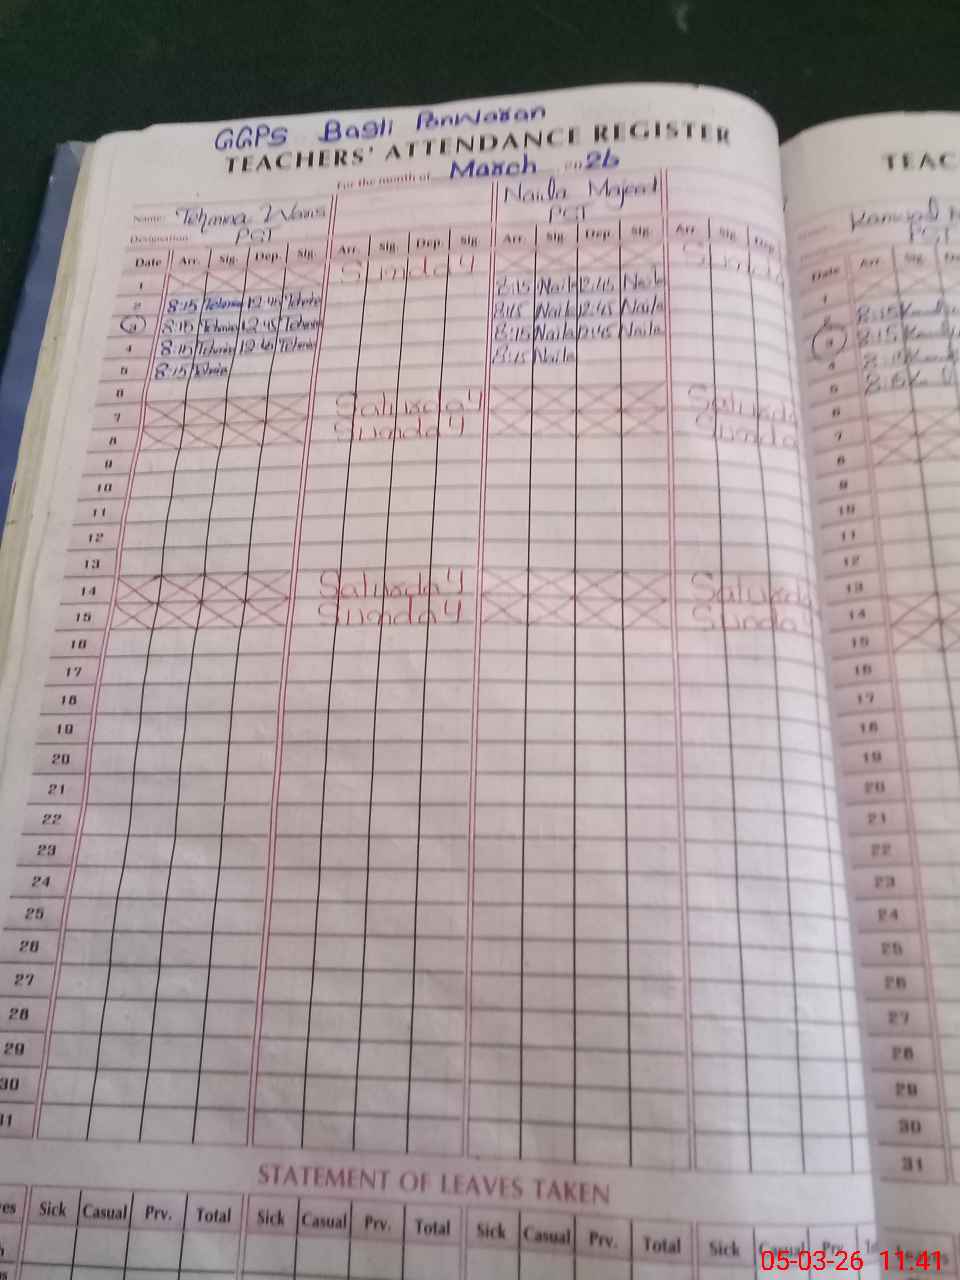 GGPS Bagli Panwaran
TEACHERS' ATTENDANCE REGISTER
For the month of March 2026
Name: Tehmina Naila Majeed
Designation PGT PGT
Date Arr. Sig. Dep. Sig. Arr. Sig. Dep. Sig Arr. Sig. Dep. Sig. Arr Sig. Dep.
1 Sunday Sunday
2 8:15 Tehmina 12:45 Tehmina 8:15 Naila 12:45 Naila
3 8:15 Tehmina 12:45 Tehmina 8:15 Naila 12:45 Naila
4 8:15 Tehmina 12:45 Tehmina 8:15 Naila 12:45 Naila
5 8:15 Tehmina 8:15 Naila
6
7 Saturday Saturday
8 Sunday Sunday
9
10
11
12
13
14 Saturday Saturday
15 Sunday Sunday
16
17
18
19
20
21
22
23
24
25
26
27
28
29
30
31
STATEMENT OF LEAVES TAKEN
Sick Casual Prv. Total Sick Casual Prv. Total Sick Casual Prv. Total Sick Casual Prv.
TEAC
PGT
Date Arr. Sig.
1
2 8:15
3 8:15
4 8:15
5 8:15
6
7
8
9
10
11
12
13
14
15
16
17
18
19
20
21
22
23
24
25
26
27
28
29
30
31
05-03-26 11:41